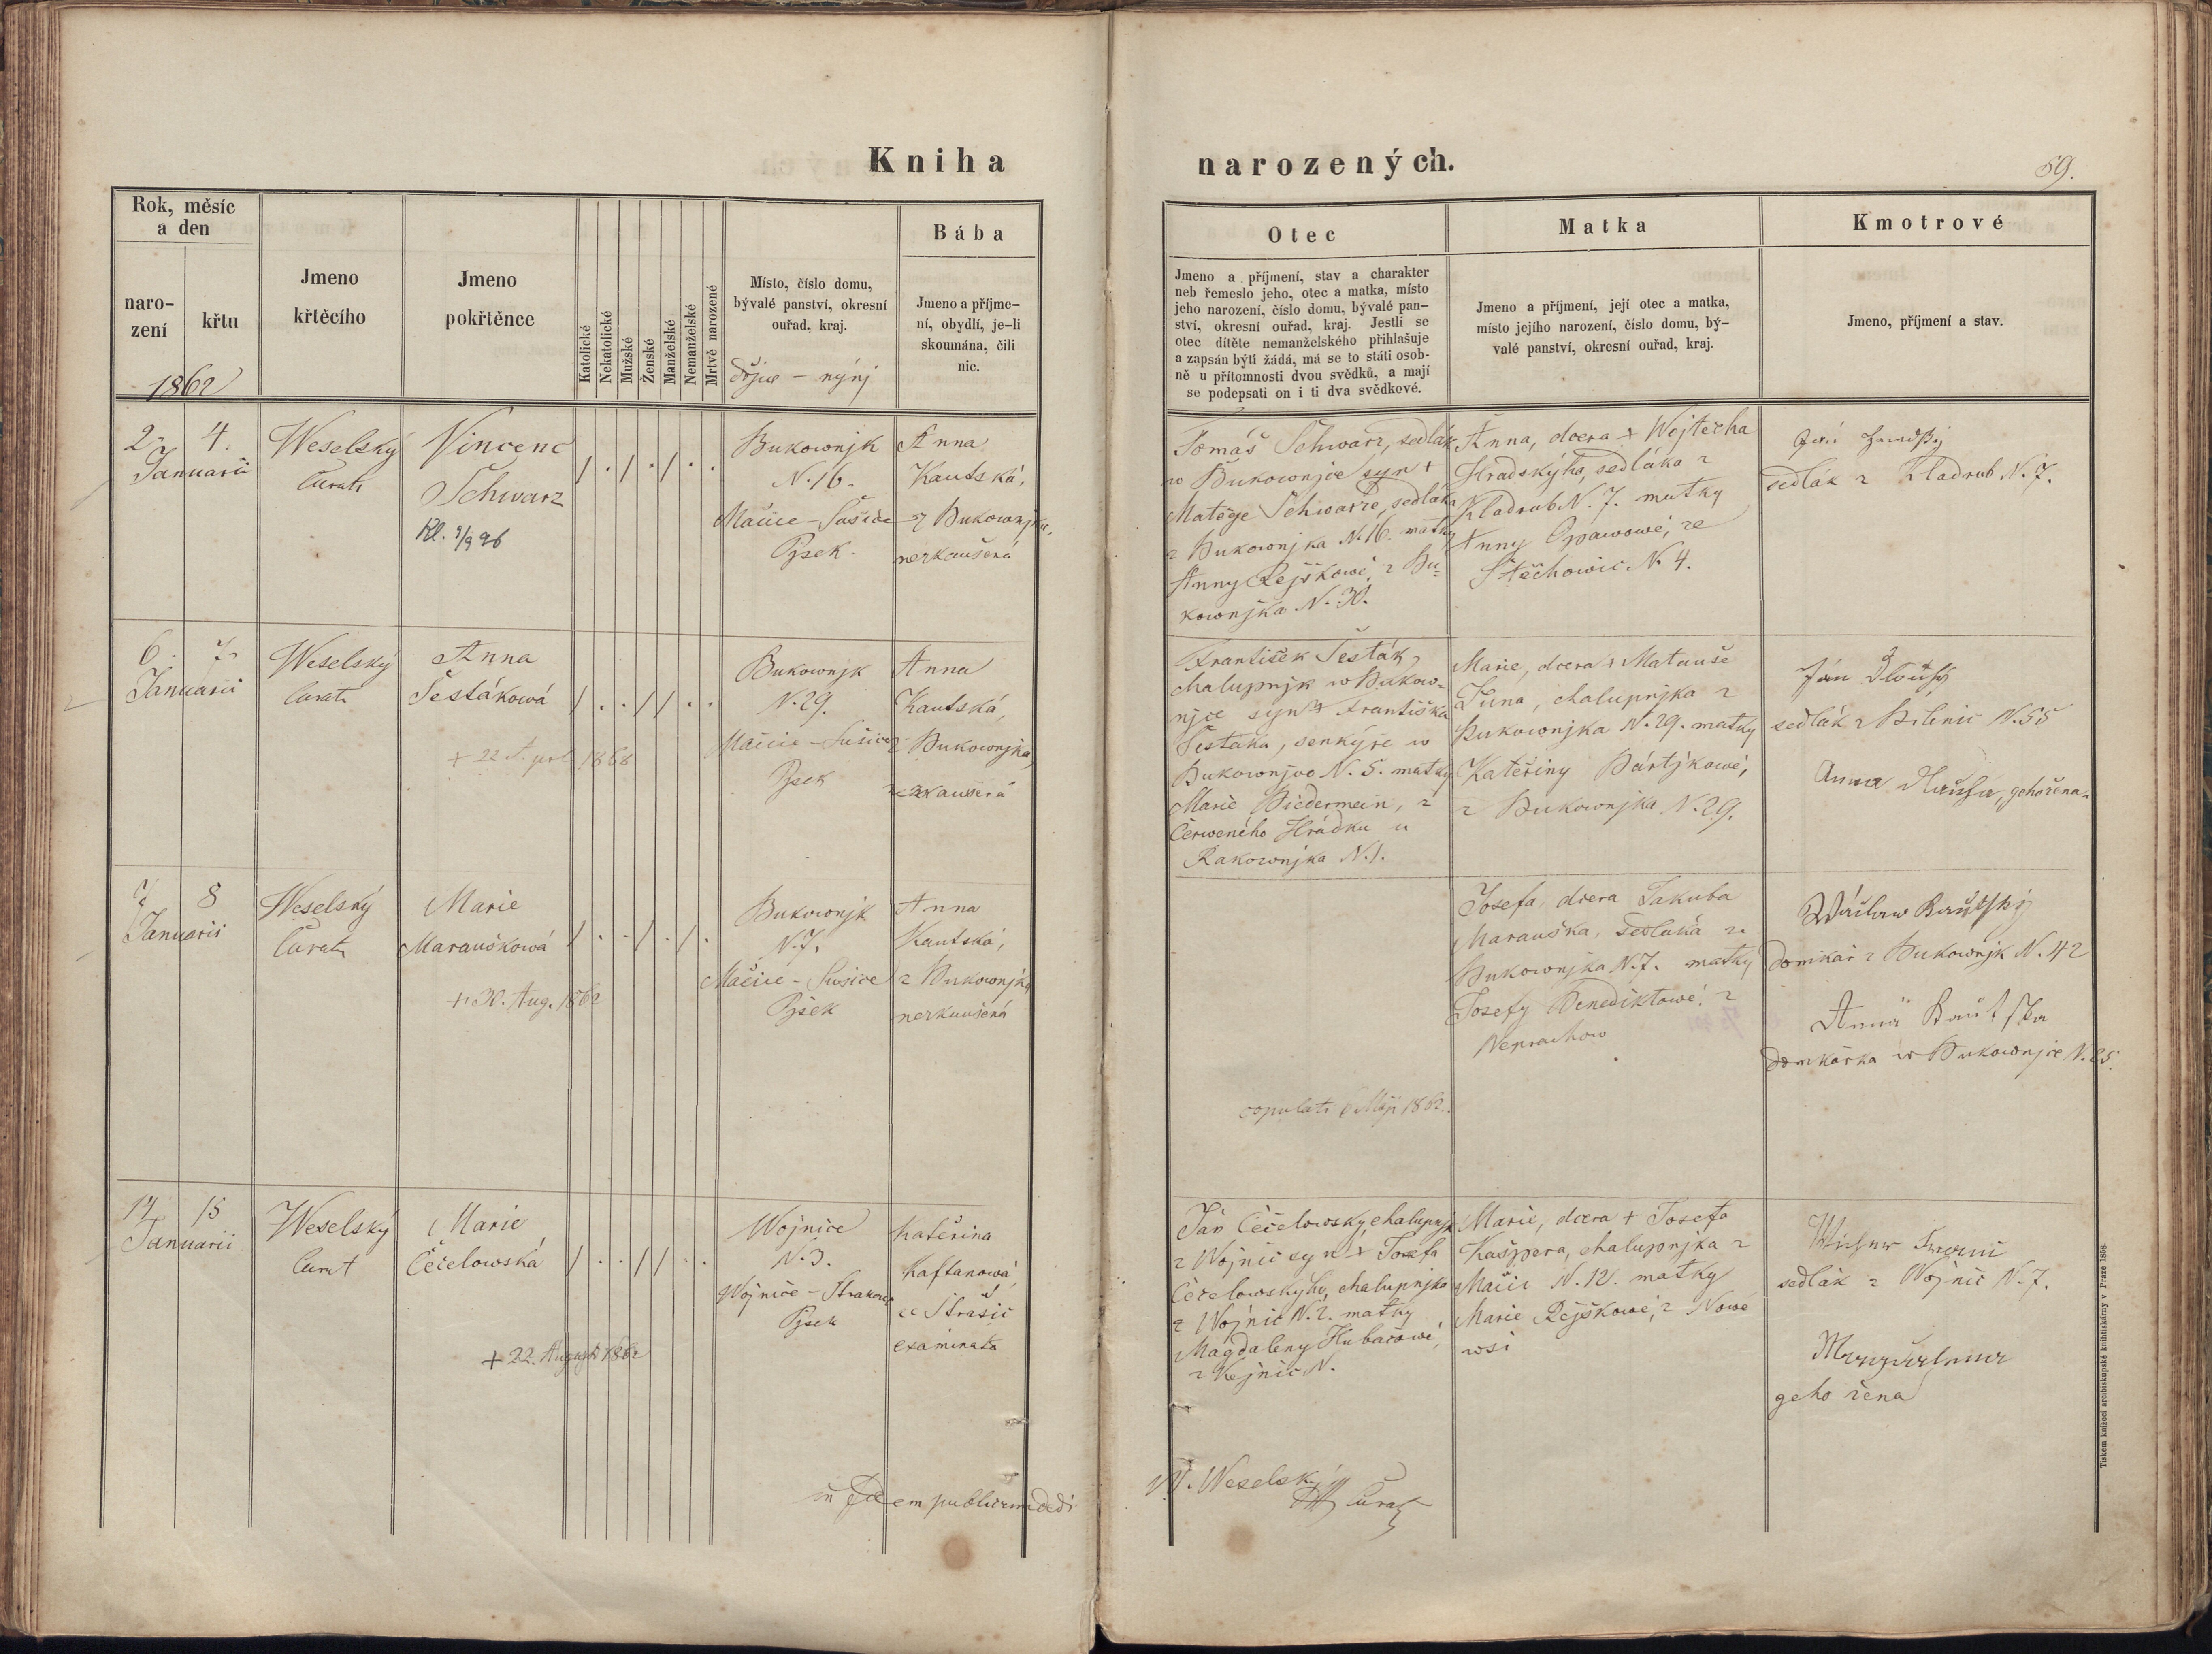 Kniha
narozených.
59.
Rok, měsíc
a den
naro-
zení
křtu
1862
Jmeno
křtěcího
Jmeno
pokřtěnce
Katolické
Nekatolické
Mužské
Ženské
Manželské
Nemanželské
Mrtvě narozené
Místo, číslo domu,
bývalé panství, okresní
ouřad, kraj.
dřjwe - nynj
Bába
Jmeno a příjme-
ní, obydlí, je-li
skoumána, čili
nic.
Otec
Jmeno a příjmení, stav a charakter
neb řemeslo jeho, otec a matka, místo
jeho narození, číslo domu, bývalé pan-
ství, okresní ouřad, kraj. Jestli se
otec dítěte nemanželského přihlašuje
a zapsán býti žádá, má se to státi osob-
ně u přítomnosti dvou svědků, a mají
se podepsati on i ti dva svědkové.
Matka
Jmeno a příjmení, její otec a matka,
místo jejího narození, číslo domu, bý-
valé panství, okresní ouřad, kraj.
Kmotrové
Jmeno, příjmení a stav.
2. 4.
Januarii
Weselský
Curat
Vincenc
Schwarz
Rl. 9/9 96
/ . / . / . .
Bukownjk
N. 16.
Mačice - Sušice
Pjsek
Anna
Kautská,
z Bukownjka,
nezkaušená
Tomáš Schwarz, sedlák
w Bukownjce syn +
Matěge Schwarze, sedláka
z Bukownjka N. 16. matky
Anny Rejškowé, z Bu-
kownjka N. 30.
Anna, dcera + Wojtěcha
Hradskýho, sedláka z
Kladrub N. 7. matky
Anny Opawowé, ze
Štěchowic N. 4.
sedlák z Kladrub N. 7.
6. 7.
Januarii
Weselský
Curat
Anna
Šestáková
+ 22 1868
/ . . / / . .
Bukownjk
N. 29.
Mačice - Sušice
Pjsek
Anna
Kautská,
z Bukownjka,
nezkaušená
František Šesták,
chalupnjk w Bukow-
njce syn + Františka
Šestáka, šenkýře w
Bukownjce N. 5. matky
Marie Biedermein, z
Čerweného Hrádku u
Rakownjka N. 1.
Marie, dcera + Matauše
Luna, chalupnjka z
Bukownjka N. 29. matky
Kateřiny Bártjkowé,
z Bukownjka N. 29.
Ján Dlouhý
sedlák z Bilenic N. 55
Anna geho žena
7 8
Januarii
Weselský
Curat
Marie
Marauškowá
+ 30. Aug. 1862
/ . . / . / .
Bukownjk
N. 7.
Mačice - Sušice
Pjsek
Anna
Kautská,
z Bukownjka
nezkaušená
copulati 6 Maji 1862.
Josefa, dcera Jakuba
Marauška, sedláka z
Bukownjka N. 7. matky
Josefy Benediktowé, z
Neprachow
Wáclaw Kautský
domkař z Bukownjk N. 42
Anna Kautska
domkařka w Bukownjce N. 25.
14 15
Januarii
Weselský
Curat
Marie
Čečelowská
+ 22. August 1862
/ . . / / . .
Wojnice
N. 3.
Wojnice - Strakon.
Pjsek
Kateřina
Kaftanowá,
ze Strašic
examinata
Jan Čečelowský, chalupnjk
z Wojnic syn + Josefa
Čečelowskýho, chalupnjka
z Wojnic N. 2. matky
Magdaleny Hubačowé,
z Kejnic N.
Marie, dcera + Josefa
Kašpera, chalupnjka z
Mačic N. 12. matky
Marie Rejškowé, z Nowé
wsi
sedlák z Wojnic N. 7.
Magdalena
geho žena
in fidem publicam dedi
W. Weselský
Curat
Tiskem knížecí arcibiskupské knihtiskárny v Praze 1858.